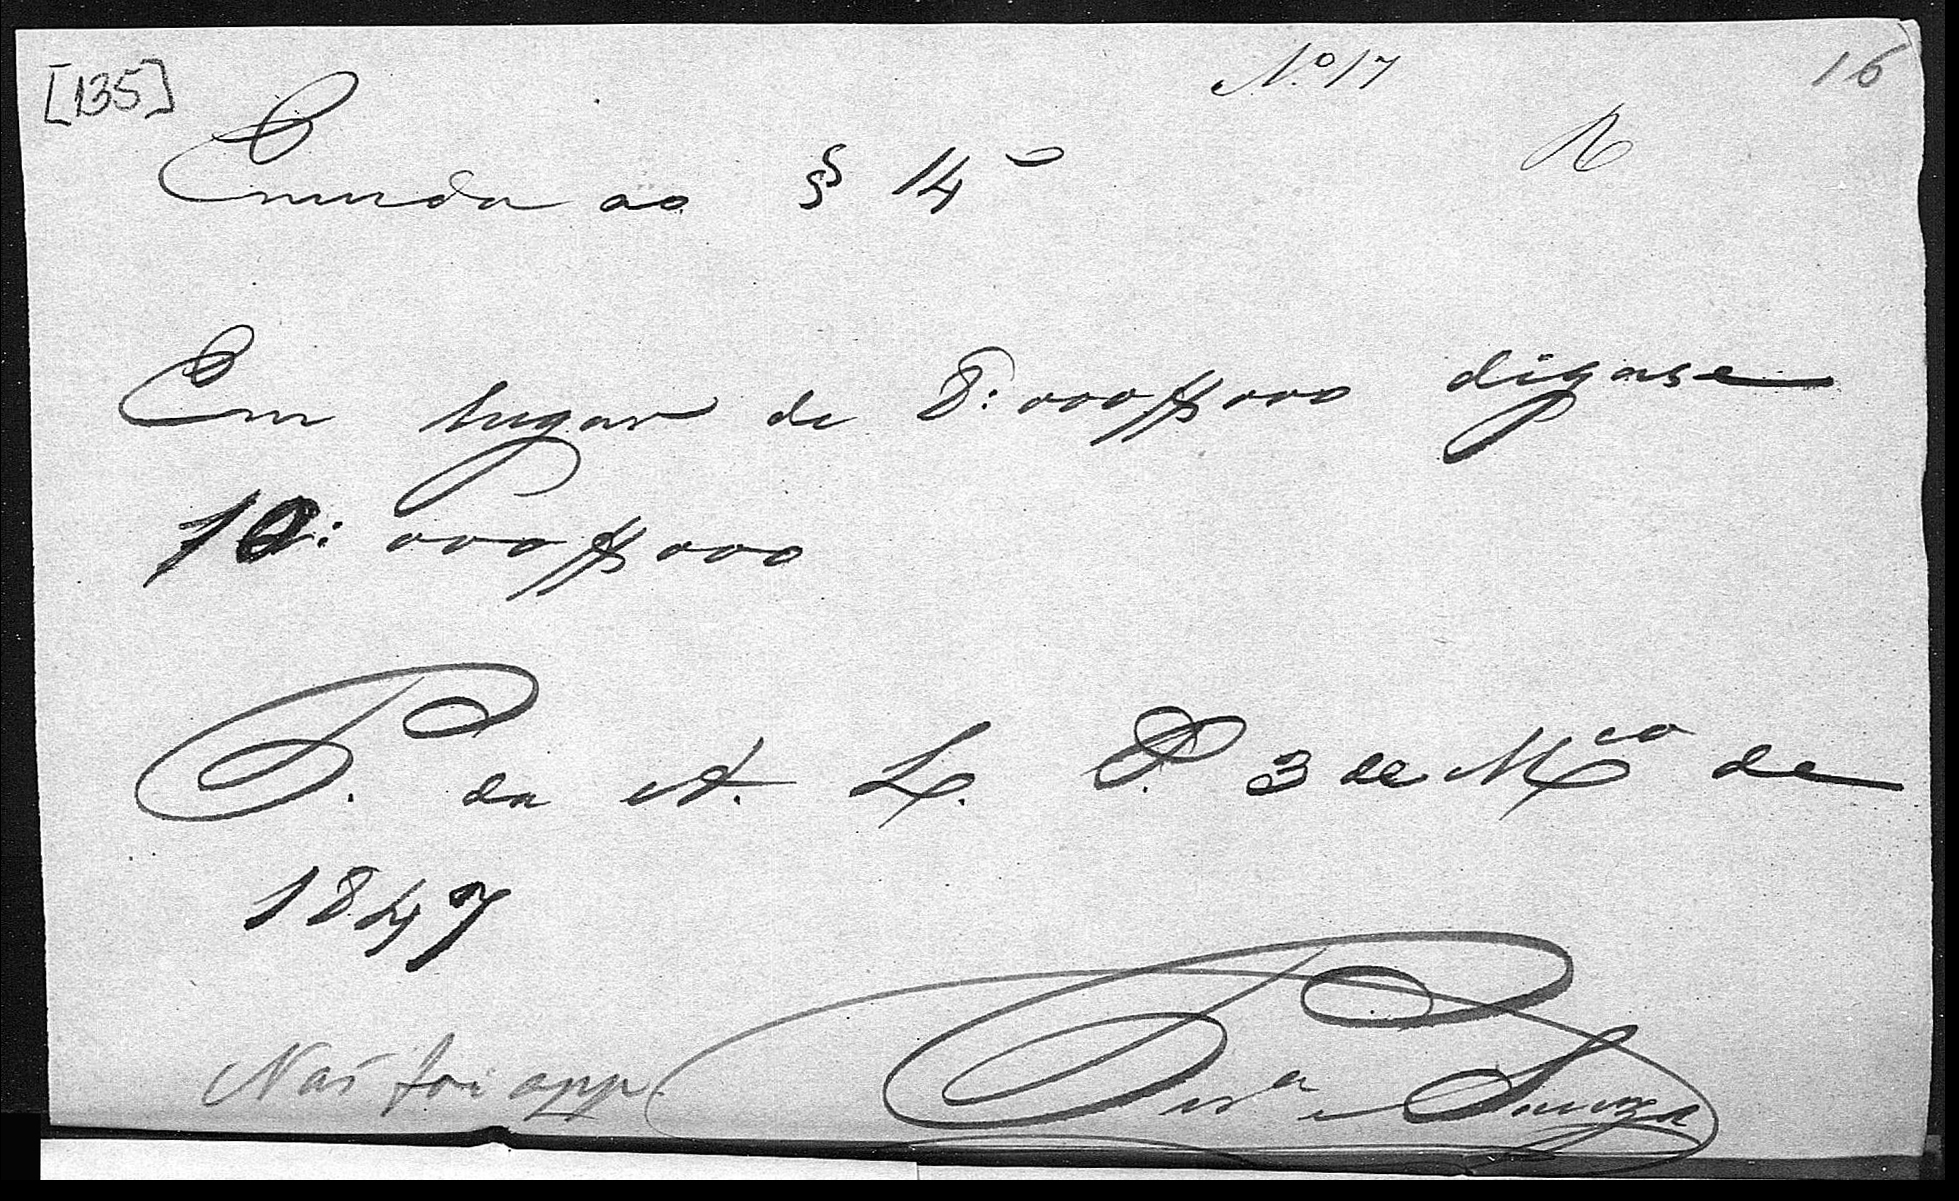 [135]
Nº 17
16
R
Emenda ao § 14º
Em lugar de 8:000$000 digase
10:000$000
P. da A. L. P. 3 de Mço de
1847
Não foi app.
Perª e Souza